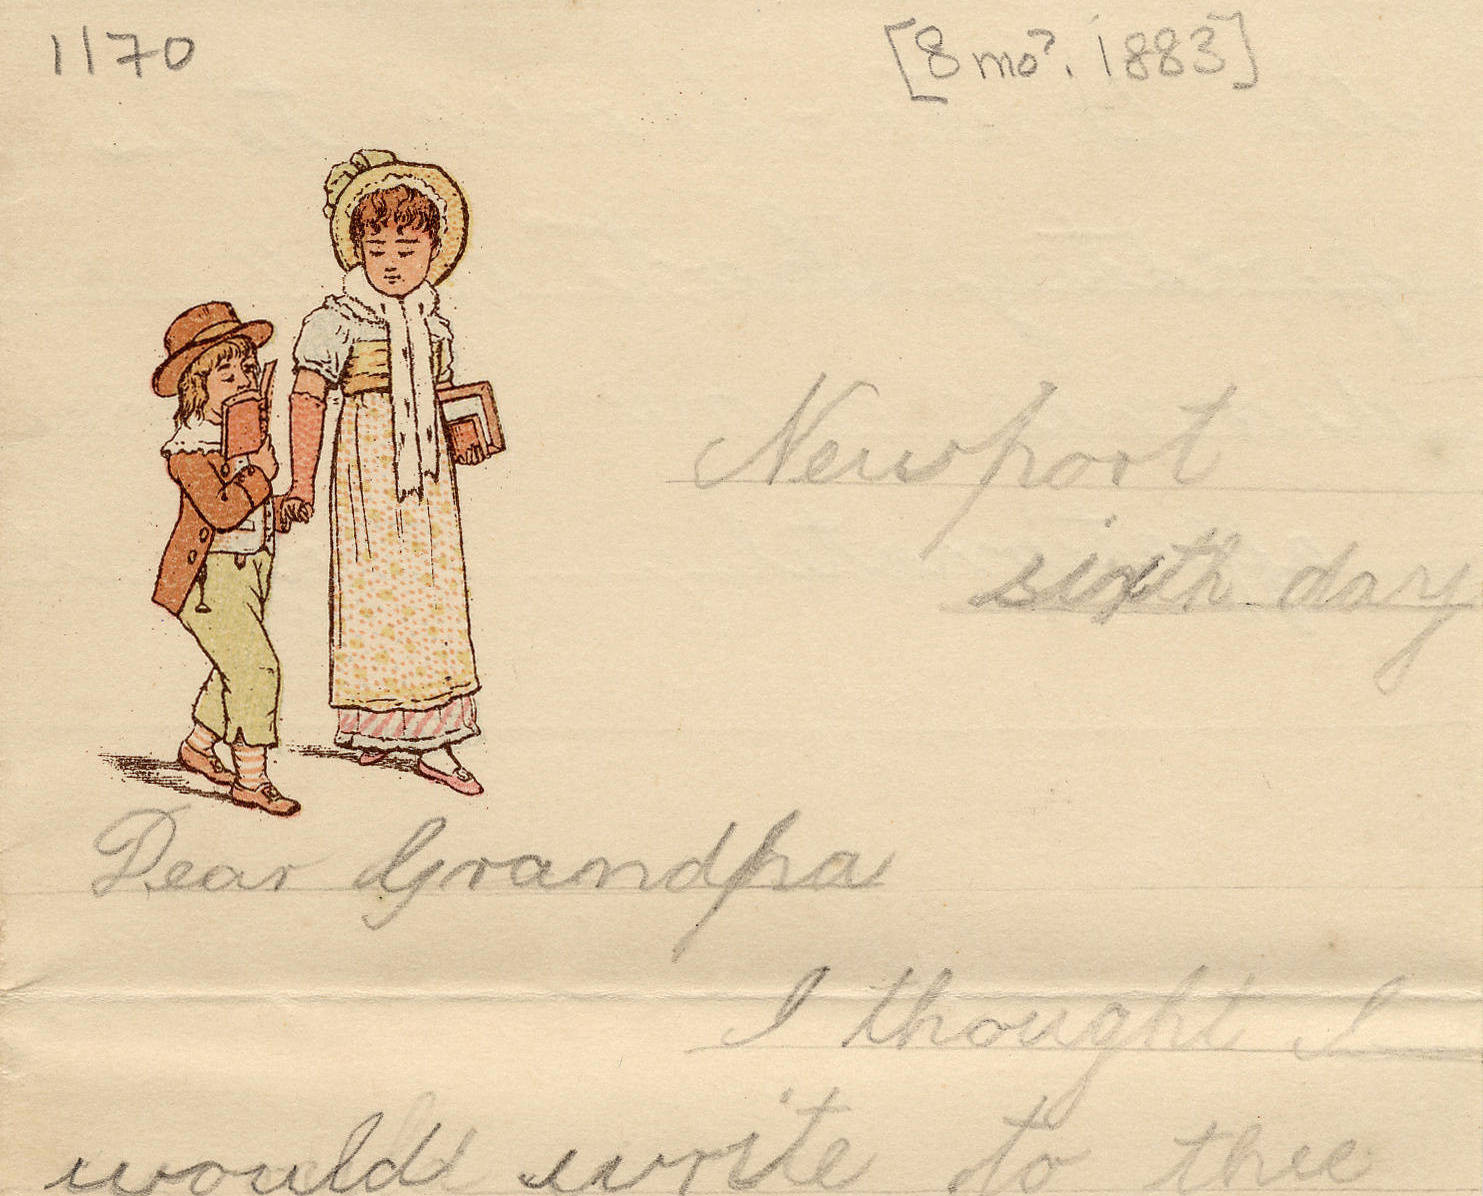 1170
[8 mo?. 1883]
Newport
sixth day
Dear Grandpa
I thought I
would write to thee